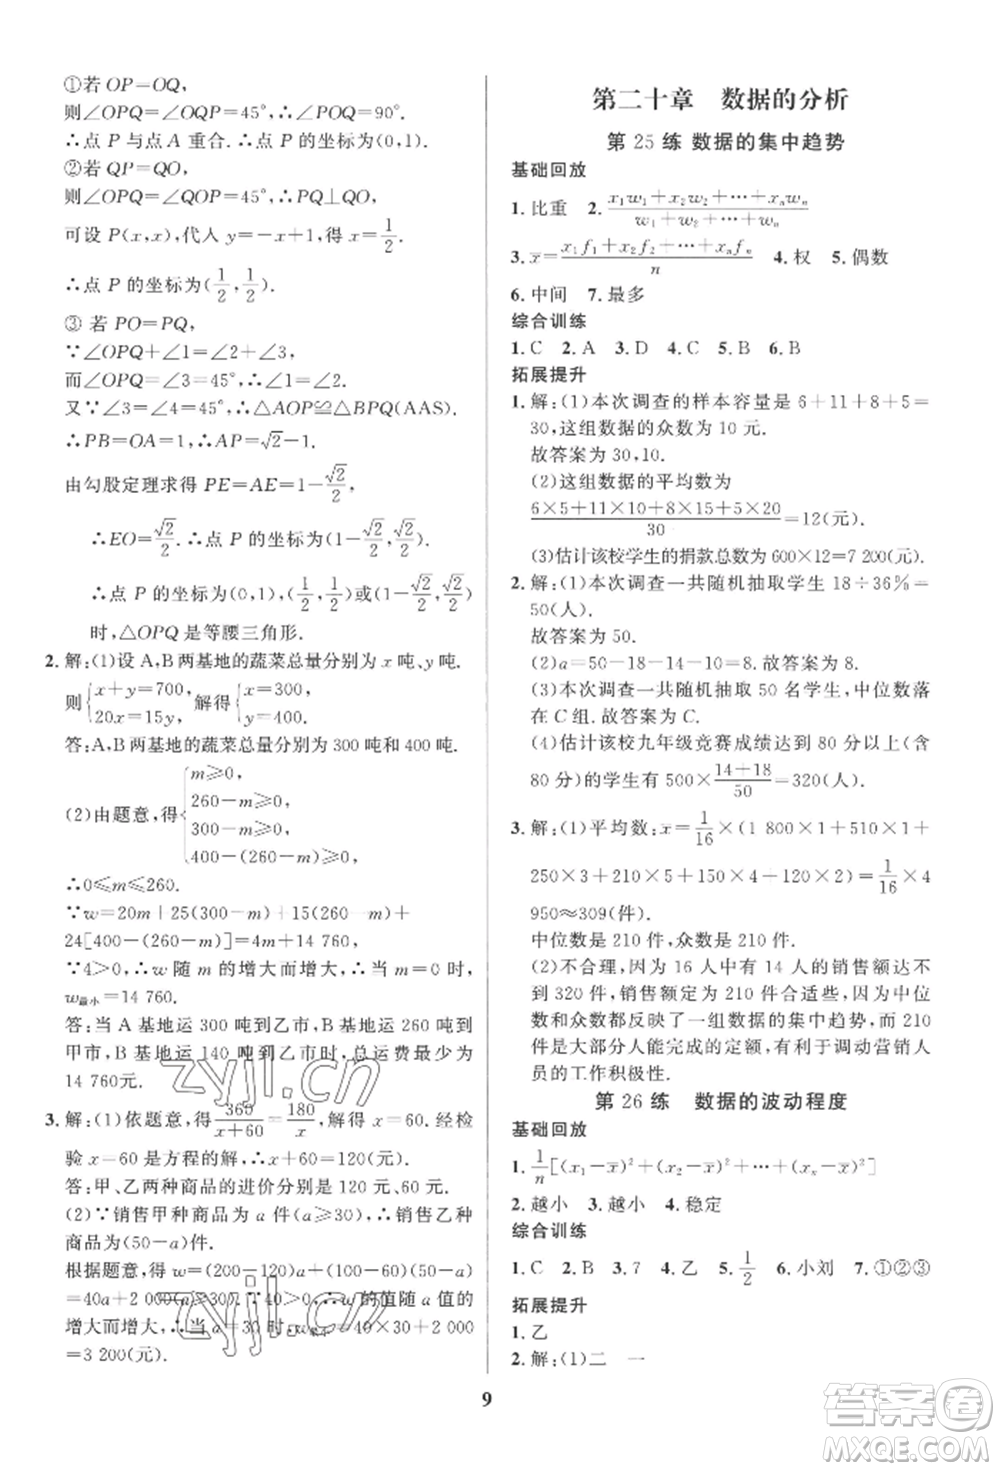 ①若 OP=OQ,
则∠OPQ=∠OQP=45°,∴∠POQ=90°.
∴点 P 与点 A 重合.∴点 P 的坐标为(0,1).
②若 QP=QO,
则∠OPQ=∠QOP=45°,∴PQ⊥QO,
可设 P(x,x),代人 y=-x+1,得 x=1/2.
∴点 P 的坐标为(1/2,1/2).
③ 若 PO=PQ,
∵∠OPQ+∠1=∠2+∠3,
而∠OPQ=∠2=45°,∴∠1=∠3.
又∵∠3=∠4=45°,∴△AOP≌△BPQ(AAS).
∴PB=OA=1,∴AP=√2-1.
由勾股定理求得 PE=AE=1-√2/2,
∴EO=√2/2.∴点 P 的坐标为(1-√2/2,√2/2).
∴点 P 的坐标为(0,1),(1/2,1/2)或(1-√2/2,√2/2)
时,△OPQ 是等腰三角形.
2.解:(1)设 A,B两基地的蔬菜总量分别为 x 吨、y 吨.
则{x+y=700, 20x=15y, 解得{x=300, y=400.
答:A,B两基地的蔬菜总量分别为 300 吨和 400 吨.
(2)由题意,得{m≥0, 260-m≥0, 300-m≥0, 400-(260-m)≥0,
∴0≤m≤260.
∵w=20m+25(300-m)+15(260-m)+
24[400-(260-m)]=4m+14 760,
∵4>0,∴w 随 m 的增大而增大,∴当 m=0 时,
w最小=14 760.
答:当 A 基地运 300 吨到乙市,B 基地运 260 吨到
甲市,B 基地运 140 吨到乙市时,总运费最少,为
14 760元.
3.解:(1)依题意,得360/(x+60)=180/x,解得 x=60.经检
验 x=60 是方程的解,∴x+60=120(元).
答:甲、乙两种商品的进价分别是 120 元、60 元.
(2)∵销售甲种商品为 a 件(a≥30),∴销售乙种
商品为(50-a)件.
根据题意,得 w=(200-120)a+(100-60)(50-a)
=40a+2 000(a≥30).∵40>0,∴w 的值随 a 值的
增大而增大,∴当 a=30 时,w最小=40×30+2 000
=3 200(元).
第二十章 数据的分析
第 25 练 数据的集中趋势
基础回放
1.比重 2.(x₁w₁+x₂w₂+…+xₙwₙ)/(w₁+w₂+…+wₙ)
3.x̄=(x₁f₁+x₂f₂+…+xₙfₙ)/n 4.权 5.偶数
6.中间 7.最多
综合训练
1.C 2.A 3.D 4.C 5.B 6.B
拓展提升
1.解:(1)本次调查的样本容量是 6+11+8+5=
30,这组数据的众数为 10 元.
故答案为 30,10.
(2)这组数据的平均数为
(6×5+11×10+8×15+5×20)/30=12(元).
(3)估计该校学生的捐款总数为 600×12=7 200(元).
2.解:(1)本次调查一共随机抽取学生 18÷36%=
50(人).
故答案为 50.
(2)a=50-18-14-10=8.故答案为 8.
(3)本次调查一共随机抽取 50 名学生,中位数落
在 C 组.故答案为 C.
(4)估计该校九年级竞赛成绩达到 80 分以上(含
80 分)的学生有 500×(14+18)/50=320(人).
3.解:(1)平均数:x̄=1/16×(1 800×1+510×1+
250×3+210×5+150×3+120×2)=1/16×4
950≈309(件).
中位数是 210 件,众数是 210 件.
(2)不合理,因为 16 人中有 14 人的销售额达不
到 320 件,销售额定为 210 件合适些,因为中位
数和众数都反映了一组数据的集中趋势,而 210
件是大部分人能完成的定额,有利于调动营销人
员的工作积极性.
第 26 练 数据的波动程度
基础回放
1.1/n[(x₁-x̄)²+(x₂-x̄)²+…+(xₙ-x̄)²]
2.越小 3.越小 4.稳定
综合训练
1.C 2.B 3.7 4.乙 5.1/2 6.小刘 7.①②③
拓展提升
1.乙
2.解:(1)二 一
9
zyjl.cn
zyjl.cn
答案圈
MXQE.COM